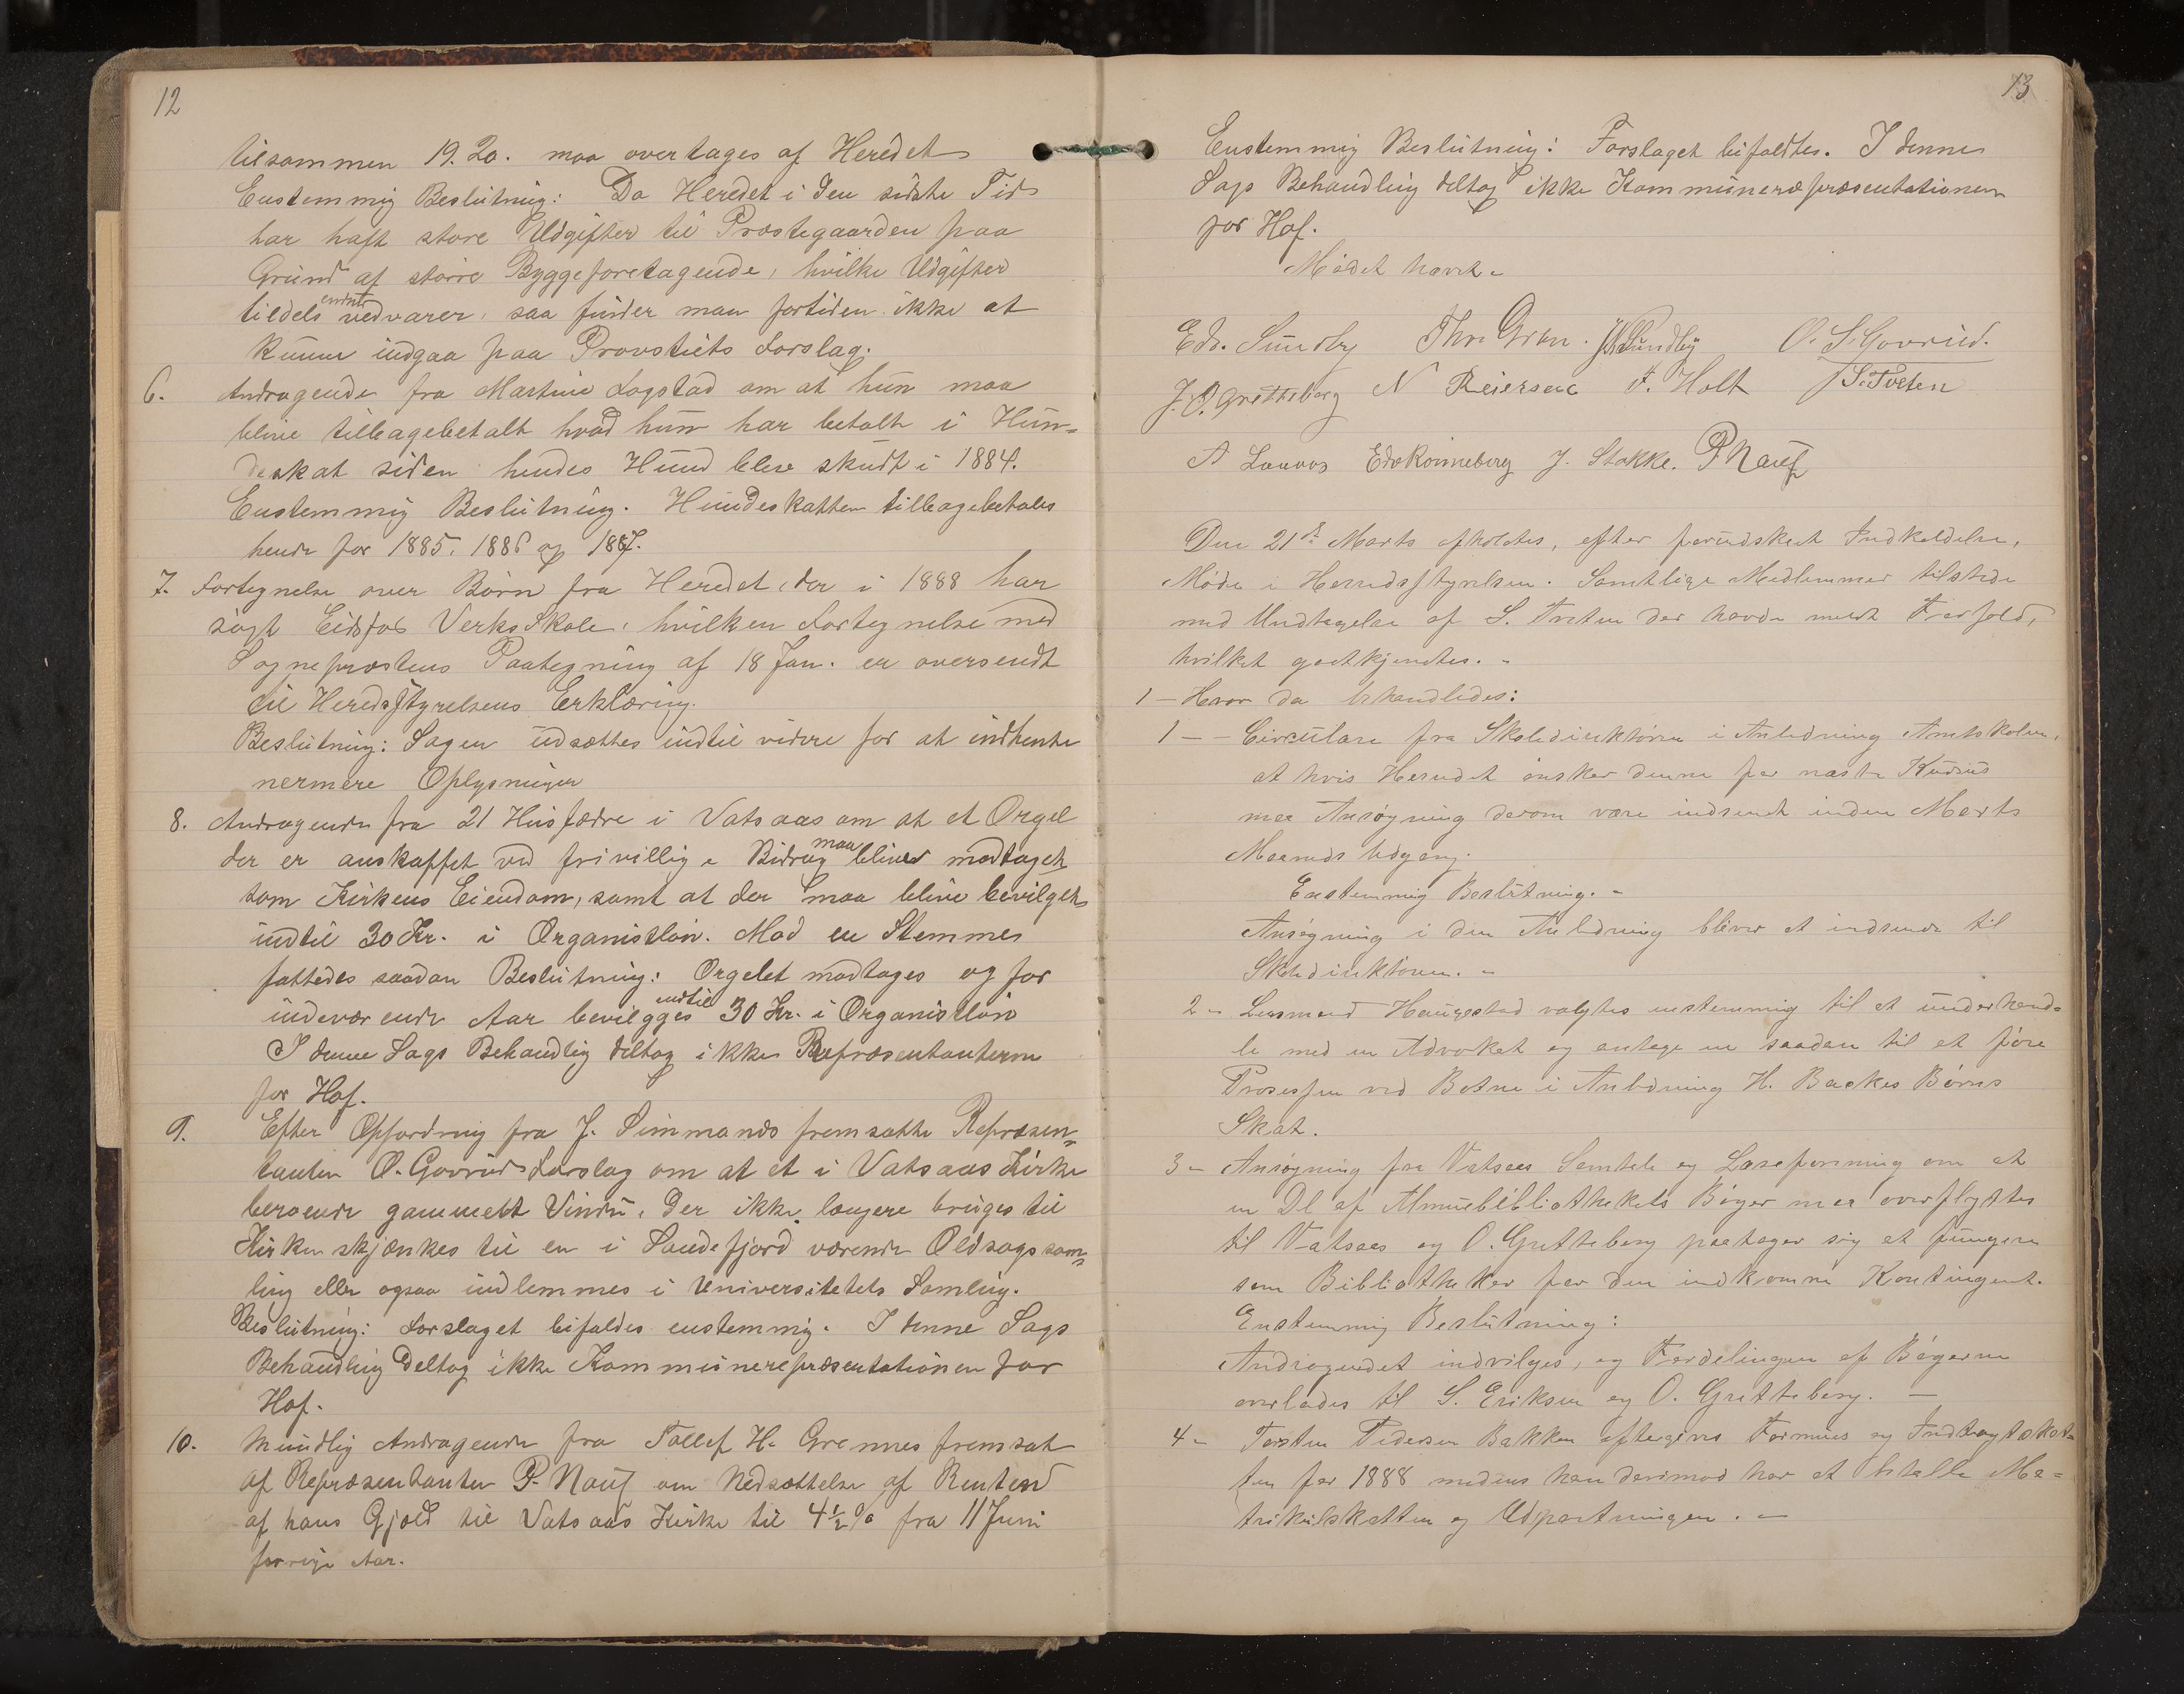 12
tilsammen 19.20. maa overtages af Heredet
Enstemmig Beslutning: Da Heredet i den sidste Tid
har haft store Udgifter til Præstegaarden paa
Grund af større Byggeforetagende, hvilke Udgifter
tildels endnu vedvarer, saa finder man fortiden ikke at
kunne indgaa paa Provstiets Forslag.
6. Andragende fra Martine Fogstad om at hun maa
blive tilbagebetalt hvad hun har betalt i Hun-
deskat siden hendes Hund blev skudt i 1884.
Enstemmig Beslutning. Hundeskatten tilbagebetales
hende for 1885. 1886 og 1887.
7. Fortegnelse over Børn fra Heredet, der i 1888 har
søgt Eidsfos Verks Skole, hvilken Fortegnelse med
Sognepræstens Paategning af 18 Jan. er oversendt
til Heredsstyrelsens Erklæring.
Beslutning: Sagen udsættes indtil videre for at indhente
nermere Oplysninger
8. Andragende fra 21 Husfædre i Vatsaas om at et Orgel
der er anskaffet ved frivillige Bidrag maa blive modtaget
som Kirkens Eiendom, samt at der maa blive bevilget
indtil 30 Kr. i Organistløn. Mod en Stemmes
fattedes saadan Beslutning: Orgelet modtages og for
indeværende Aar bevilgges indtil 30 Kr. i Organistløn
I denne Sags Behandlig deltog ikke Repræsentanterne
for Hof.
9. Efter Opfordring fra J. Simmonds fremsatte Repræsen-
tanten O. Govrud Forslag om at et i Vatsaas Kirke
beroende gammelt Vindu, der ikke længere bruges til
Kirken skjænkes til en i Sandefjord værende Oldsagssam-
ling eller ogsaa indlemmes i Universitetets Samling.
Beslutning: Forslaget bifaldes enstemmig. I denne Sags
Behandling deltog ikke Kommunerepræsentationen for
Hof.
10. Mundlig Andragende fra Tollef H. Grennes fremsat
af Repræsentanten P. Nauf om Nedsættelse af Renten
af hans Gjæld til Vatsaas Kirke til 4½% fra 11 Juni
forrige Aar.
13
Enstemmig Beslutning: Forslaget bifaldtes. I denne
Sags Behandling deltog ikke Kommunerepræsentationen
for Hof.
Mødet hævet.
Edv. Sundby Thv. Gran. Sundby O. S. Govrud.
J. O. Gretteberg N Reiersen F. Holt S. Tveten
A Edv Rønneberg J. Stokke. P Nauf
Den 21de Marts afholdtes, efter forudskeet Indkaldelse,
Møde i Herredsstyrelsen. Samtlige Medlemmer tilstede
med Undtagelse af S. Tveten der havde meldt Forfald,
hvilket godtkjendtes. -
1 - Hvor da behandledes:
1 - - Circulære fra Skoledirektøren i Anledning Amtskolen,
at hvis Herredet ønsker denne for næste Kursus
maa Ansøgning derom være indsendt inden Marts
Maaneds Udgang.
Enstemmig Beslutning. -
Ansøgning i den Anledning bliver at indsende til
Skoledirektøren. -
2 - Lensmand Haugestad valgtes enstemmig til at underhand-
le med en Advokat og antage en saadan til at føre
Prosessen ved Botne i Anledning H. Backes Børns
Skat.
3 - Ansøgning fra Vatsaas Samtale og Læseforening om at
en Del af Almuebibliothekets Bøger maa overflyttes
til Vatsaas og O. Gretteberg paatager sig at fungere
som Bibliotheker for den indkomne Kontingent.
Enstemmig Beslutning:
Andragendet indvilges, og Fordelingen af Bøgerne
overlades til S. Eriksen og O. Gretteberg. -
4 - Torsten Pedersen Bakken eftergives Formues og Indtægtskat-
ten for 1888 medens han derimod har at betale Ma-
trikulskatten og Udpantningen. -